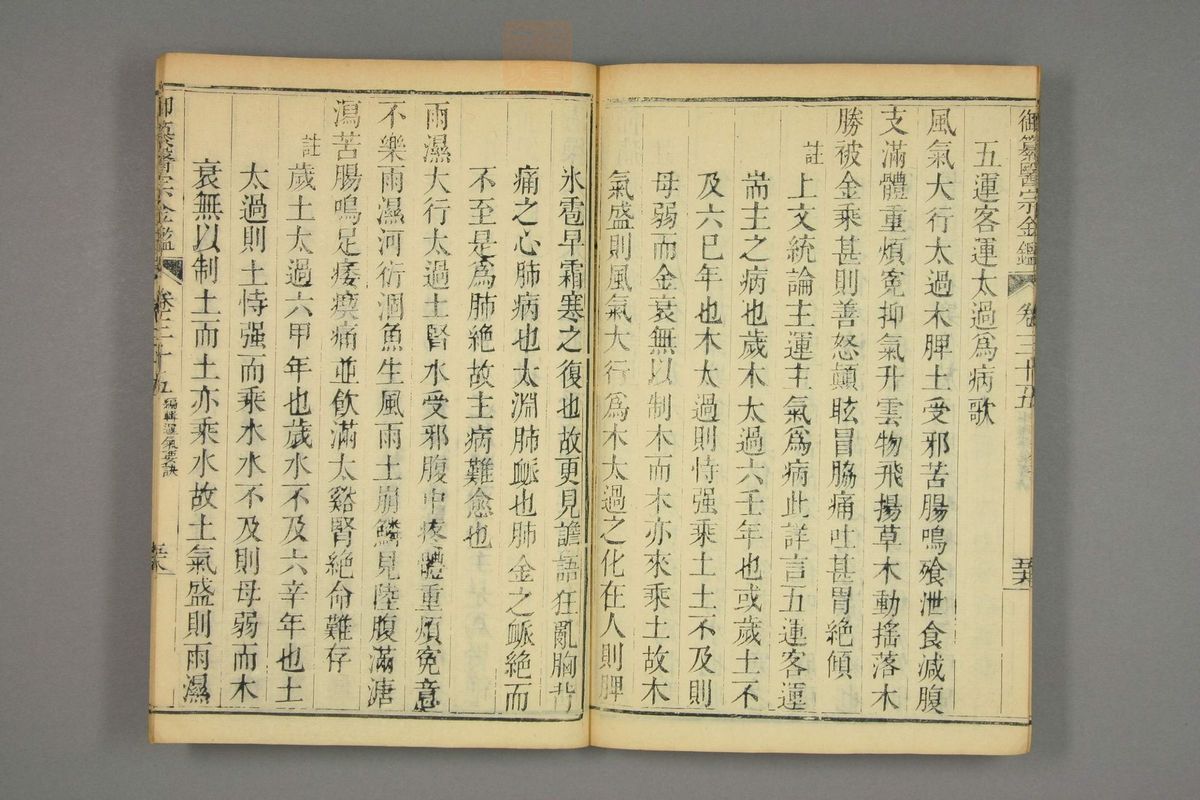 御纂醫宗金鑑 卷三十五
五運客運太過爲病歌
風氣大行太過木脾土受邪苦腸鳴飧泄食減腹
支滿體重煩寃抑氣升雲物飛揚草木動搖落木
勝被金乘甚則善怒顚眩冒脇痛吐甚胃絶傾
註上文統論主運主氣爲病此詳言五運客運
耑主之病也歲木太過六壬年也或歲土不
及六巳年也木太過則恃强乘土土不及則
母弱而金衰無以制木而木亦來乘土故木
氣盛則風氣大行爲木太過之化在人則脾
氷雹早霜寒之復也故更見譫語狂亂胸背
痛之心肺病也太淵肺脈也肺金之脈絶而
不至是爲肺絶故主病難愈也
雨濕大行太過土腎水受邪腹中疼體重煩寃意
不樂雨濕河衍涸魚生風雨土崩鱗見陸腹滿溏
瀉苦腸鳴足痿瘈痛並飮滿太谿腎絶命難存
註歲土太過六甲年也歲水不及六辛年也土
太過則土恃强而乘水水不及則母弱而木
衰無以制土而土亦乘水故土氣盛則雨濕
御纂醫宗金鑑 卷三十五 編輯運氣要訣